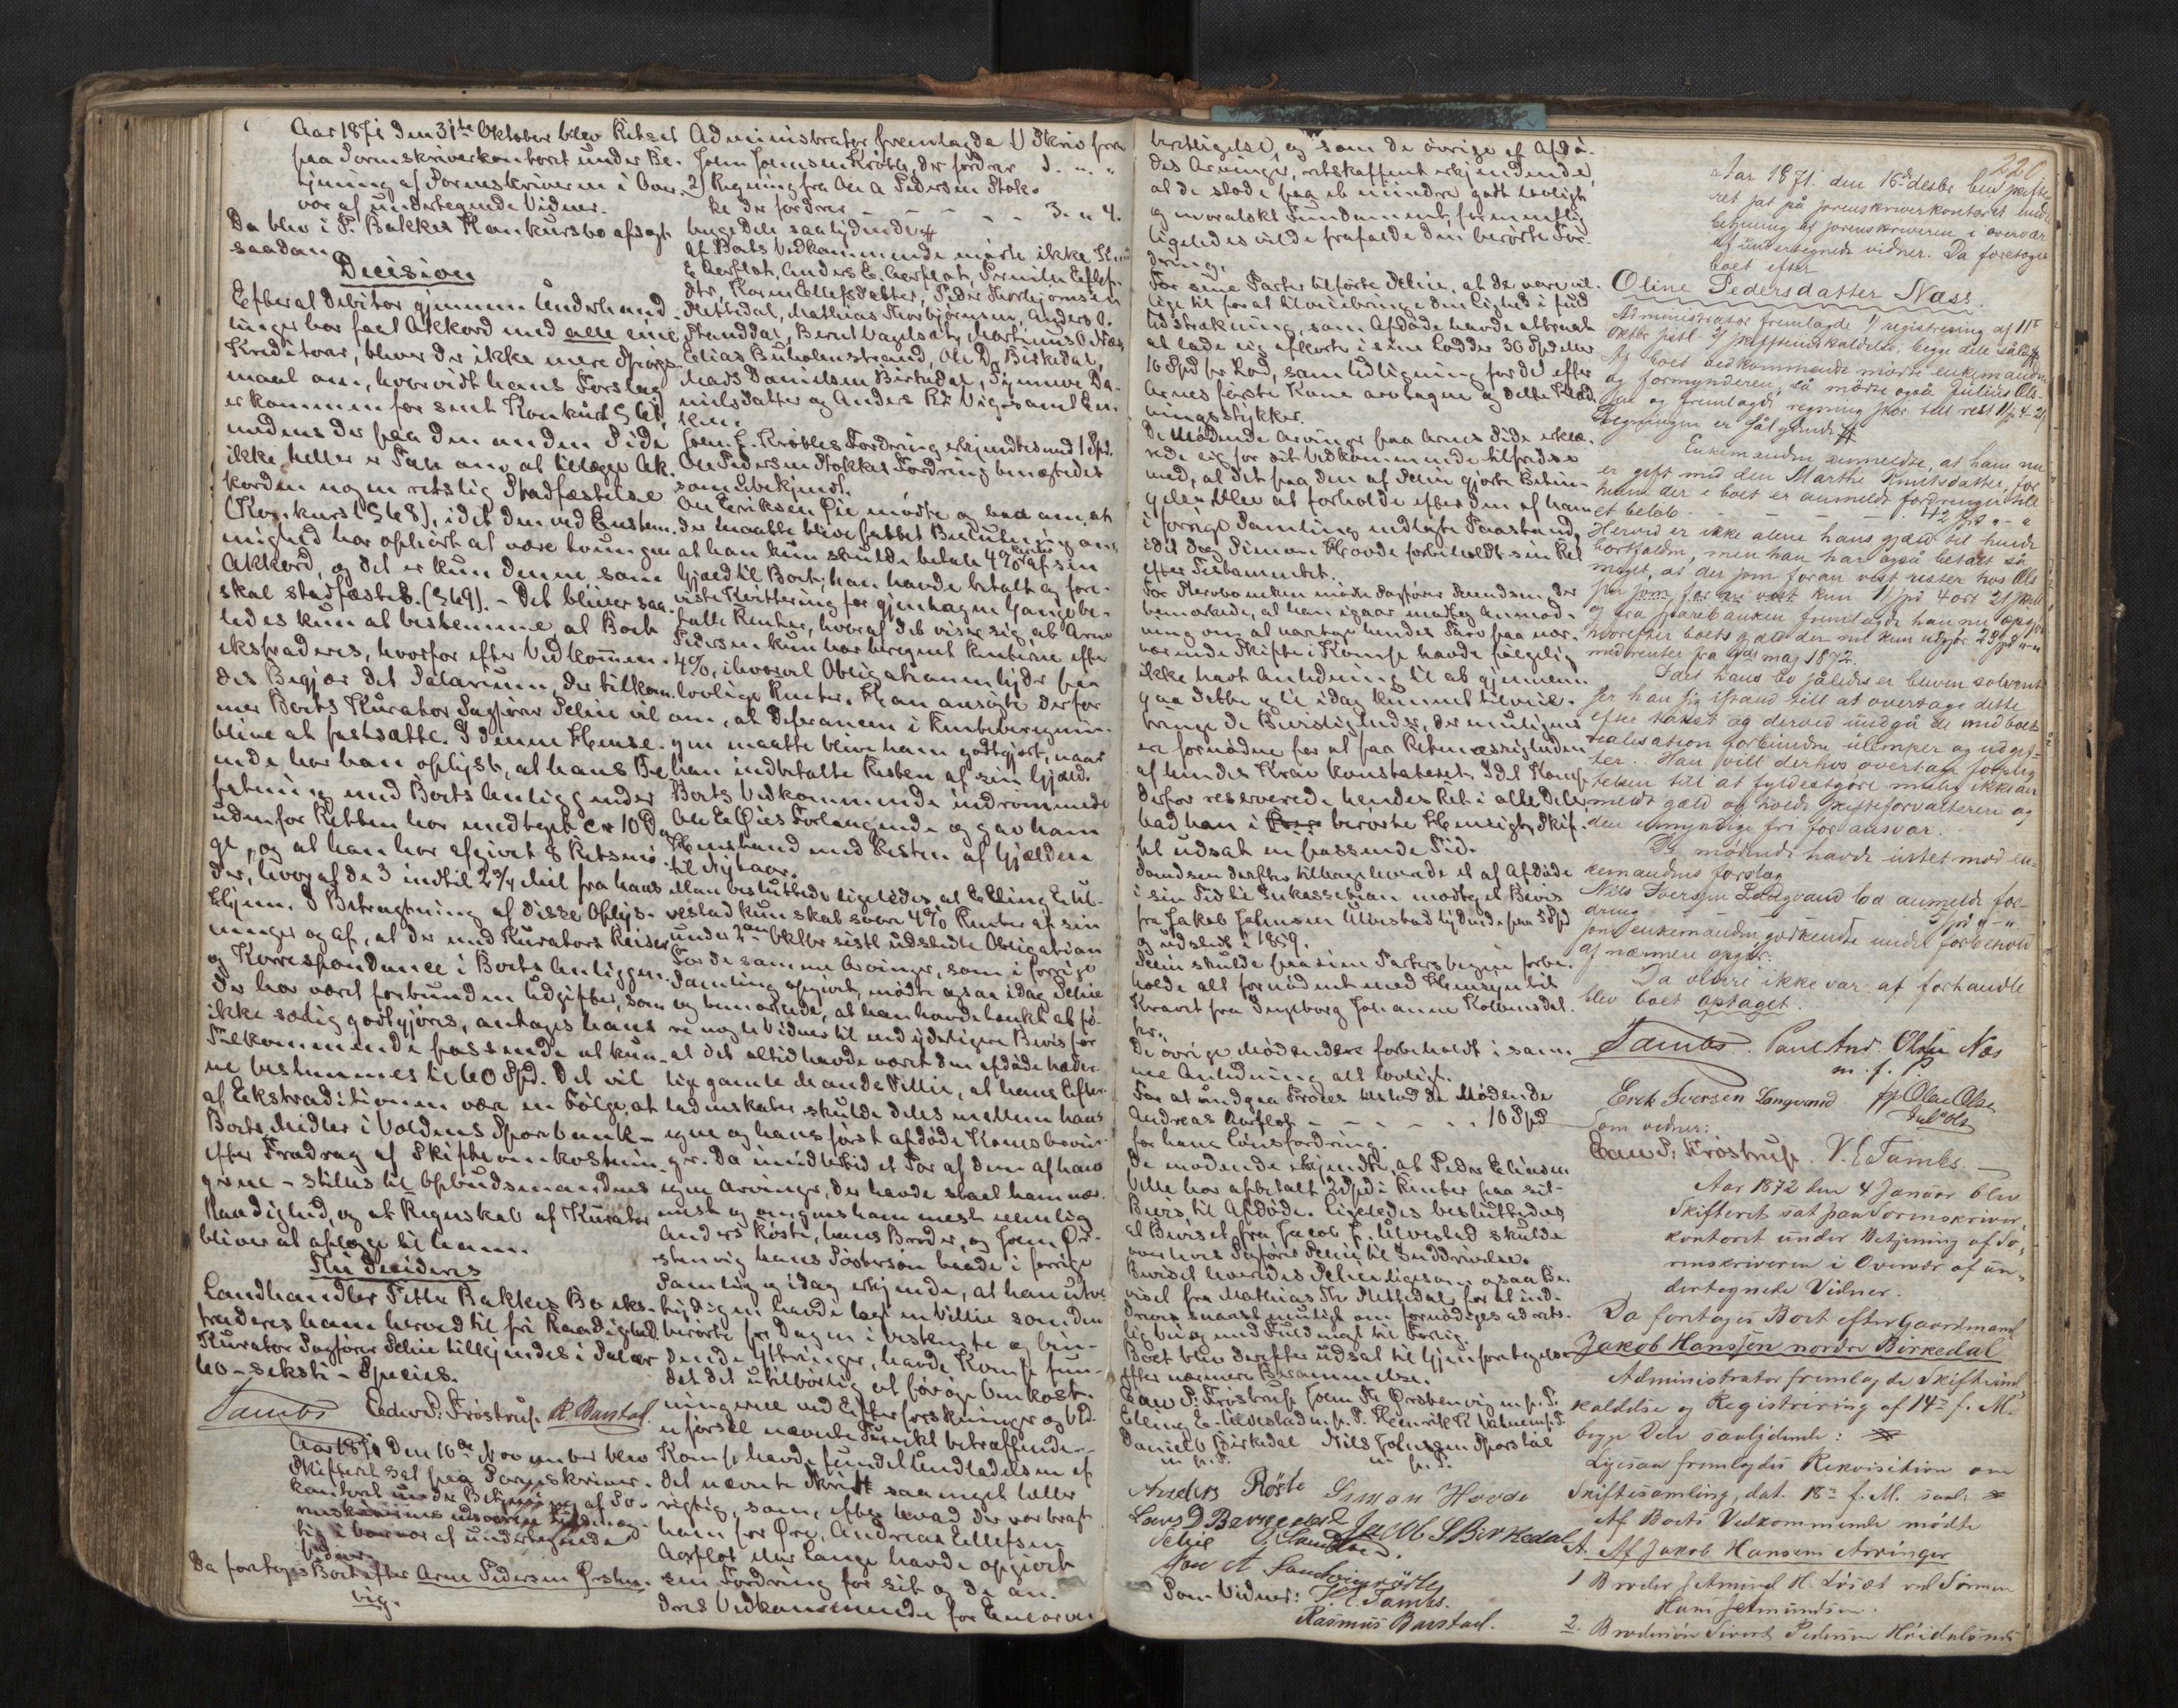 Aar 1871 den 31te Oktober blev Retset
paa Sorenskriverkontoret under Be-
tjening af Sorenskriveren i Over-
vær af undertegnede Vidner.
Da blev i P. Bakkes Konkursbo afsagt
saadan
Decision
Efterat Debitor gjennem Underhand-
linger har faaet Akkord med alle sine
Kreditorer, bliver der ikke mere Spørgs-
maal om, hvorvidt hans Forslag
er kommen for sent Konkursl §
medens der paa den anden Side
ikke heller er Tale om at tillægge Ak-
korden nogen retslig Stadfæstelse
(Konkursl § 68), idet den ved Enstem-
mighed har ophørt at være tvungen
Akkord, og det er kun denne, som
skal stadfæstes. (§ 69). - Det bliver saa-
ledes kun at bestemme at Boet
ekstraderes, hvorfor efter Vedkommen-
des Begjær det Salarium, der tilkom-
mer Boets Kurator Sagfører Selliee vil
blive at fastsætte. I denne Hense-
ende har han oplyst, at hans Be-
fatning med Boets Anliggender
udenfor Retten har medtaget ca 10 Da-
ge, og at han har afgivet 8 Retsmø-
der, hvoraf de 3 indtil 2 3/4 Mil fra hans
Hjem. I Betragtning af disse Oplys-
ninger og af, at der med Kurators Reiser
og Korrespondance i Boets Anliggen-
der har været forbunden Udgifter, som
ikke særlig godtgjøres, antages hans
Tilkommende passende at kun-
ne bestemmes til 60 Spd. Det vil
af Ekstraditionen være en Følge, at
Boets Midler i Voldens Sparebank -
efter Fradrag af Skifteomkostnin-
gerne - stilles til Opbudsmandens
Raadighed, og at Regnskab af Kurator
bliver at aflægge til ham.
Thi Decideres
Landhandler Petter Bakkes Bo eks-
traderes ham herved til fri Raadighed
Kurator Sagfører Selliee tillkjendes i Salær
60 - seksti - Species.
Tambs Edew P. Frøstrup. R. Barstad.
Aar 1871 den 16de November blev
Skifteret sat paa Sorenskriver-
kontoret under Betjening af So-
renskriverens
i Overvær af undertegnede
Vidner.
Da foretoges Boet efter Arne Pedersen Ørsten-
vig.
Administrator fremlagde 1) Skriv fra
John Johnsen Krøble, der fordrer 1. " "
2) Regning fra Ole A Pedersen Stok-
ke der fordrer - - - - - 3. " 4.
begge Dele saalydende
Af Boets Vedkommende mødte ikke
E Aarflot, Anders E. Aarflot, Pernille Ellefs-
dtr, Karen Ellefsdatter, Peder Thorbjørnsen
Mettedal, Mathias Thorbjørnsen, Anders O.
Standdal, Bernt Vagelsæt, Martinus O. Næs
Elias Buholmstrand, Ole D. Birkedal,
Mads Danielsen Birkedal, Synneve Da-
nielsdatter og Anders Vig samt En-
ken.
John J. Krøbles Fordring erkjendtes med 1 Spd.
Ole Pedersen Stokkes Fordring benegtedes
som ubekjendt.
Ole Eriksen Øie mødte og bad om, at
der maatte blive fattet Beslutning om,
at han kun skulde betale 4% Renter af sin
Gjæld til Boet; han havde betalt og fore-
viste Kvittering for gjentagne Gange be-
talte Renter, hvoraf det viser sig, at Arne
Pedersen kun har beregnet Renterne efter
4%, ihvorvel Obligationen lyder paa
lovlige Renter. Han ansøgte derfor
om, at Diferansen i Renteberegnin-
gen maatte blive ham godtgjort, naar
han indbetalte Resten af sin Gjæld.
Boets Vedkommende indrømmede
Ole E. Øies Forlangende og gav ham
Henstand med Resten af Gjælden
til Nytaar.
Man besluttede ligeledes, at E. Elling E. Ul-
vestad kun skal svare 4% Renter af sin
under 2den Oktbr sistl. udstedte Obligation
For de samme Arvinger, som i forrige
Samling opgivet, mødte ogsaa idag Selliee
og bemærkede, at han havde tænkt at fø-
re nogle Vidner til end yderligere Bevis for
at det altid havde været den afdøde hæder-
lige gamle Mands Villie, at hans Efter-
ladenskaber skulde deles mellem hans
egne og hans først afdøde Kones Arvin-
ger. Da imidlertid et Par af dem af hans
egne Arvinger, der havde staaet ham nær-
mest og omgaaes ham mest nemlig
Anders Røste, hans Broder, og John Ør-
stenvig hans Søstersøn baade i forrige
Samling og idag erkjende, at han utve-
tydigen havde lagt en Villie som den
berørte for Dagen i bestemte og bin-
dende Yttringer, havde Komp. fun-
det det utilbørlig at forøge Omkost-
ningerne ved Efterforskninger og Vid-
neførsel nævnte Punkt betreffende.
Komp. havde fundet Undladelsen af
det nævnte Skridt saameget heller
rigtig, som, efter hvad der var bragt
ham for Øre, Andreas Ellefsen
Aarflot eller Lange havde opgivet
sin Fordring for sit og de an-
dres Vedkommende for Enearve-
berettigelse, og som de øvrige af Afdø-
des Arvinger, retskaffent erkjendende,
at de stode paa et mindre godt lovligt
og moralskt Fundament, formentlig
ligeledes vilde frafalde den berørte For-
dring.
For sine Parter tilførte Selliee, at de vare vil-
lige til for at tilveiebringe den Lighed i fuld
Udstrækning, som Afdøde havde attraaet
at lade sig afkorte i sine Lodder 30 Spd eller
16 Spd pr Lod, som Udligning for det efter
Arnes første Kone arvtagne og delte Klæd-
ningsstykker.
De Mødende Arvinger paa Arnes Side erklæ-
rede sig for sit Vedkommende tilfredse
med, at det paa den af Selliee gjorte Betin-
gelse blev at forholde efter den af ham
i forrige Samling nedlagte Paastand,
idet dog Simon Hovde forbeholdt sin Ret
efter Testamentet.
For Merebonken mødte Sagfører Daundsen, der
bemærkede, at han igaar modtog Anmod-
ning om at varetage hendes Tarv paa nær-
værende Skifte i Komp. havde følgelig
ikke havt Anledning til at gjennem-
gaa dette og ei idag kunnet tilveie-
bringe de Bevisligheder, der muligens
er fornødne for at faa Retmæssigheden
af hendes Krav konstateret. Idet Komp
derfor reserverede hendes Ret i alle Dele
bad han i berørte Hensigt Skif-
tet udsat en passende Tid.
Daundsen derefter tilbageleverede et af Afdøde
i sin Tid til Inkassation modtaget Bevis
fra Jakob Johnsen Ulvestad lydende paa 5 Spd
og udstedt i 1859.
Selliee skulde paa sine Parters Vegne forbe-
holde alt fornødent med Hensyn til
Kravet fra Ingeborg Johanne Kolbensdat-
ter.
De øvrige Mødendes forbeholdt i sam-
me Anledning alt lovligt.
For at undgaa Proces tilstod de Mødende
Andreas Aarflot - - - - - 10 Spd
for hans Lønsfordring.
De mødende erkjendte, at Peder Eliasen
Velle har afbetalt 2 Spd i Renter paa sit
Bevis til Afdøde. Ligeledes besluttedes,
at Beviset fra Jacob J. Ulvestad skulde
overleveres Sagfører Selliee til Inddrivelse.
Beviset leveredes Selliee ligesom ogsaa Be-
viset fra Mathias Th. Mettedal, for at ind-
drives snarest muligt om fornødiges ad rets-
lig Vei og med Fuldmagt til Forlig.
Boet blev derefter udsat til Gjenforetagelse
efter nærmere Berammelse.
Edew P. Frøstrup John Th. Ørstenvig m. p. P.
Elling E. Ulvestad m. p. P. Henrik R. Vatnem. p. P.
Daniel O Birkedal Nils Johnsen Sporstøl
m. p. P. m. p. P.
Anders Røste Simon Hovde
Lars D Berkedal Jacob S Birkedal
Selliee
Jon A Sandvigsrøste
Som Vidner: V. E. Tambs.
Rasmus Barstad.
220
Aar 1871. den 16de desbr blev skifte-
ret sat på sorenskriverkontoret under
betjening af sorenskriveren i overvær
af undertegnede vidner. Da foretoges
boet efter
Oline Pedersdatter Næss.
Administrator fremlagde 1) registrering af 11te
oktbr sistl. 2) skifteindkaldelse, begge dele sålyd.
Af boet vedkommende mødte enkemanden
og formynderen, så mødte også Julius Ols-
sen og fremlagde regning stor till rest 1 sp. 4 - 21
Regningen er sålydende
Enkemanden anmeldte, at han nu
er gift med den Marthe Knutsdatter, for
hvem der i boet er anmeldt fordringer till
et beløb - - - - - 42 spd " - "
Herved er ikke alene hans gjæld til hende
bortfalden, men han har også betalt så
meget, at der som foran vist rester hos Ols
sen som foran vist kun 1 spd 4 ort 21 skill
og fra sparebanken fremlagde han nu opgjør
hvorefter boets gjæld der nu kun udgjør 29 spd "-"
med renter fra 9de maj 1872.
Idet hans bo således er bleven solvent
ser han sig istand till at overtage dette
efter takst og derved undgå de med boets
realisation forbundne ulemper og udgif-
ter. Han vill derhos overtage forplig-
telsen till at fyldestgøre mulig ikke an-
meldt gæld og holde skifteforvalteren og
den umyndige fri for ansvar.
De mødende havde intet mod en-
kemandens forslag
Nils Iversen Langvand lod anmelde for-
dring - - - 5 spd " - "
som enkemanden godkendte under forbehold
af nærmere opgør.
Da videre ikke var at forhandle
blev boet optaget.
Tambs. Paul And. Olsen Næs
m. f. P
Erek Iversen Langvand pp Olave Olsen
Jul Ols
Som vidner:
Edew P. Frøstrup. V. E Tambs. -
Aar 1872 den 4 Januar blev
Skifteret sat paa Sorenskriver-
kontoret under Betjening af So-
renskriveren i Overvær af un-
dertegnede Vidner.
Da foretoges Boet efter Gaardmand
Jakob Hanssen nordre Birkedal
Administrator fremlagde Skifteind-
kaldelse og Registrering af 14de f. M.
begge Dele saalydende:
Ligesaa fremlagdes Rekvisition om
Skiftesamling, dat. 18de f. M. saal.
Af Boets Vedkommende mødte
A. Af Jakob Hansens Arvinger
1 Broder Jetmund H. Løsæt ved Sønnen
Hans Jetmundsen.
2. Brodersøn Sivert Pedersen Høidalsnæs